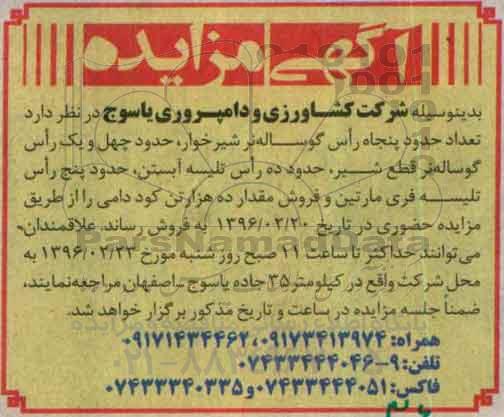 آگهی مزایده
بدینوسیله شرکت کشاورزی و دامپروری یاسوج در نظر دارد
تعداد حدود پنجاه رأس گوساله‌نر شیرخوار، حدود چهل و یک رأس
گوساله‌نر قطع شیر، حدود ده رأس تلیسه آبستن، حدود پنج رأس
تلیسه فری مارتین و فروش مقدار ده هزارتن کود دامی را از طریق
مزایده حضوری در تاریخ ۱۳۹۶/۰۲/۲۰ به فروش رساند. علاقمندان
می‌توانند حداکثر تا ساعت ۱۱ صبح روز شنبه مورخ ۱۳۹۶/۰۲/۲۳ به
محل شرکت واقع در کیلومتر ۳۵ جاده یاسوج ـ اصفهان مراجعه‌نمایند،
ضمناً جلسه مزایده در ساعت و تاریخ مذکور برگزار خواهد شد.
همراه: ۰۹۱۷۳۴۱۳۹۷۴، ۰۹۱۷۱۴۳۴۴۶۲
تلفن: ۹-۰۷۴۳۳۴۴۴۰۴۶
فاکس: ۰۷۴۳۳۴۴۴۰۵۱ و ۰۷۴۳۳۳۴۰۳۳۵
ParsNamadData